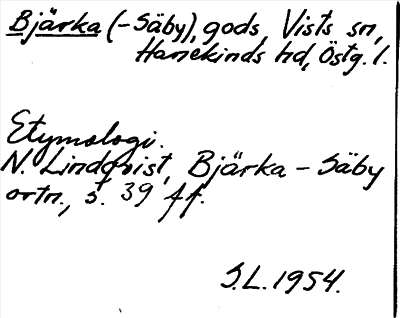 Bjärka (-Säby), gods, Vists sn,
Hanekinds hd, Östg. l.
Etymologi.
N. Lindqvist, Bjärka - Säby
ortn., s. 39 ff.
S.L. 1954.